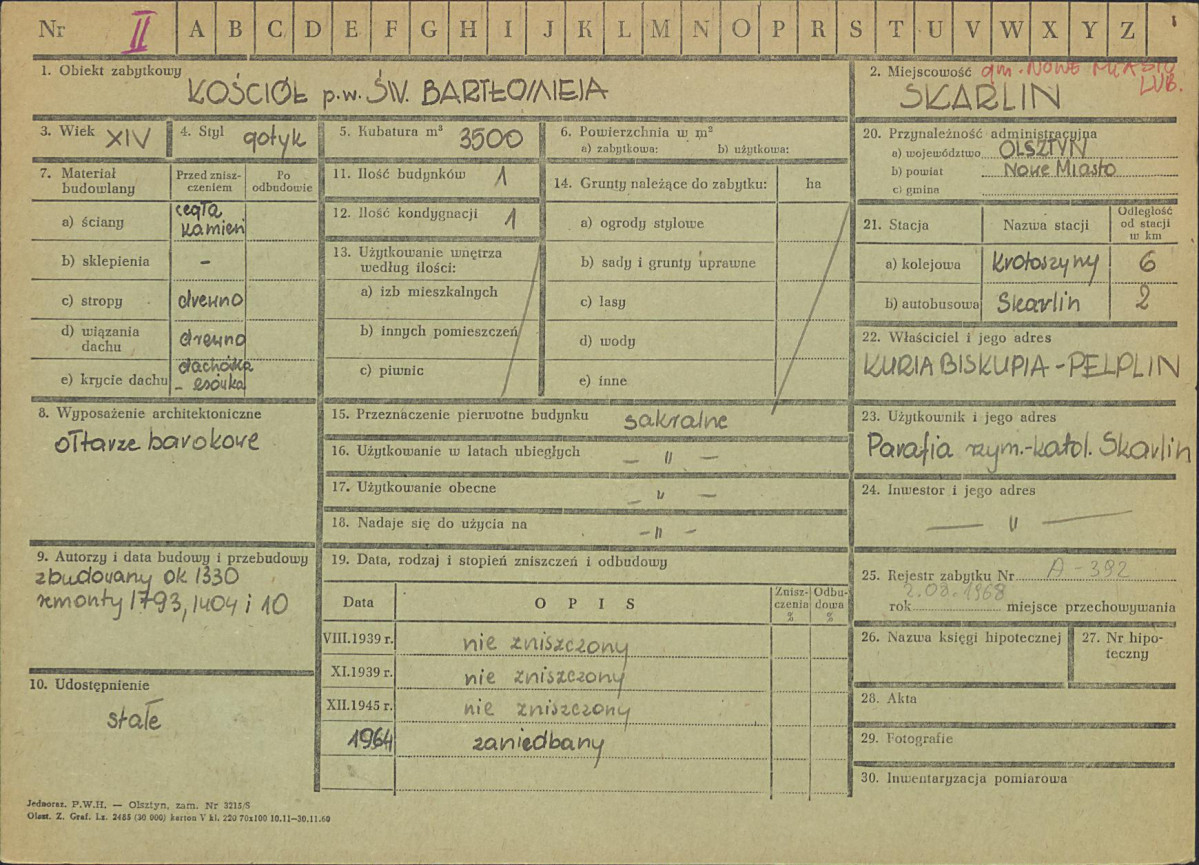 Nr II A B C D E F G H I J K L M N O P R S T U V W X Y Z
1. Obiekt zabytkowy
KOŚCIÓŁ p.w. ŚW. BARTŁOMIEJA
2. Miejscowość gm. NOWE MIASTO
LUB.
SKARLIN
3. Wiek XIV
4. Styl gotyk
5. Kubatura m³ 3500
6. Powierzchnia w m²
a) zabytkowa: b) użytkowa:
20. Przynależność administracyjna
a) województwo OLSZTYN
b) powiat Nowe Miasto
c) gmina
7. Materiał
budowlany
Przed znisz-
czeniem
Po
odbudowie
a) ściany cegła
kamień
b) sklepienia –
c) stropy drewno
d) wiązania
dachu drewno
e) krycie dachu dachówka
- esówka
11. Ilość budynków 1
12. Ilość kondygnacji 1
13. Użytkowanie wnętrza
według ilości:
a) izb mieszkalnych
b) innych pomieszczeń
c) piwnic
14. Grunty należące do zabytku: ha
a) ogrody stylowe
b) sady i grunty uprawne
c) lasy
d) wody
e) inne
21. Stacja Nazwa stacji
Odległość
od stacji
w km
a) kolejowa Krotoszyny 6
b) autobusowa Skarlin 2
22. Właściciel i jego adres
KURIA BISKUPIA - PELPLIN
8. Wyposażenie architektoniczne
ołtarze barokowe
15. Przeznaczenie pierwotne budynku sakralne
16. Użytkowanie w latach ubiegłych – " –
17. Użytkowanie obecne – " –
18. Nadaje się do użycia na – " –
23. Użytkownik i jego adres
Parafia rzym.-katol. Skarlin
24. Inwestor i jego adres
– " –
9. Autorzy i data budowy i przebudowy
zbudowany ok 1330
remonty 1793, 1404 i 10
10. Udostępnienie
stałe
19. Data, rodzaj i stopień zniszczeń i odbudowy
Data OPIS
Znisz-
czenia
%
Odbu-
dowa
%
VIII.1939 r. nie zniszczony
XI.1939 r. nie zniszczony
XII.1945 r. nie zniszczony
1964 zaniedbany
25. Rejestr zabytku Nr A-392
2.08.1968
rok miejsce przechowywania
26. Nazwa księgi hipotecznej
27. Nr hipo-
teczny
28. Akta
29. Fotografie
30. Inwentaryzacja pomiarowa
Jednoraz. P.W.H. — Olsztyn, zam. Nr 3215/S
Olszt. Z. Graf. Lz. 2485 (30 000) karton V kl. 220 70x100 10.11—30.11.60